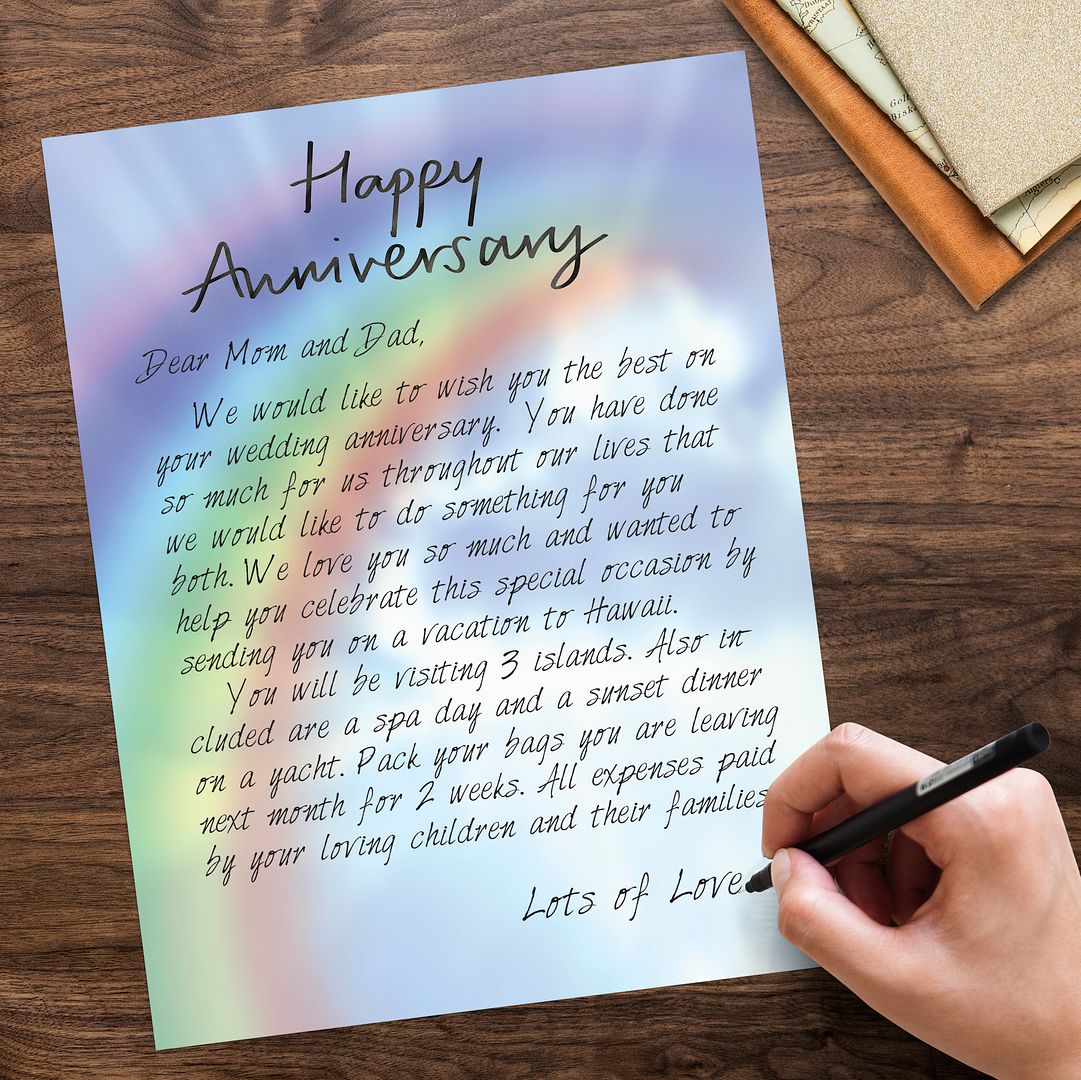 Happy
Anniversary
Dear Mom and Dad,
We would like to wish you the best on
your wedding anniversary. You have done
so much for us throughout our lives that
we would like to do something for you
both. We love you so much and wanted to
help you celebrate this special occasion by
sending you on a vacation to Hawaii.
You will be visiting 3 islands. Also in
cluded are a spa day and a sunset dinner
on a yacht. Pack your bags you are leaving
next month for 2 weeks. All expenses paid
by your loving children and their families
Lots of Love